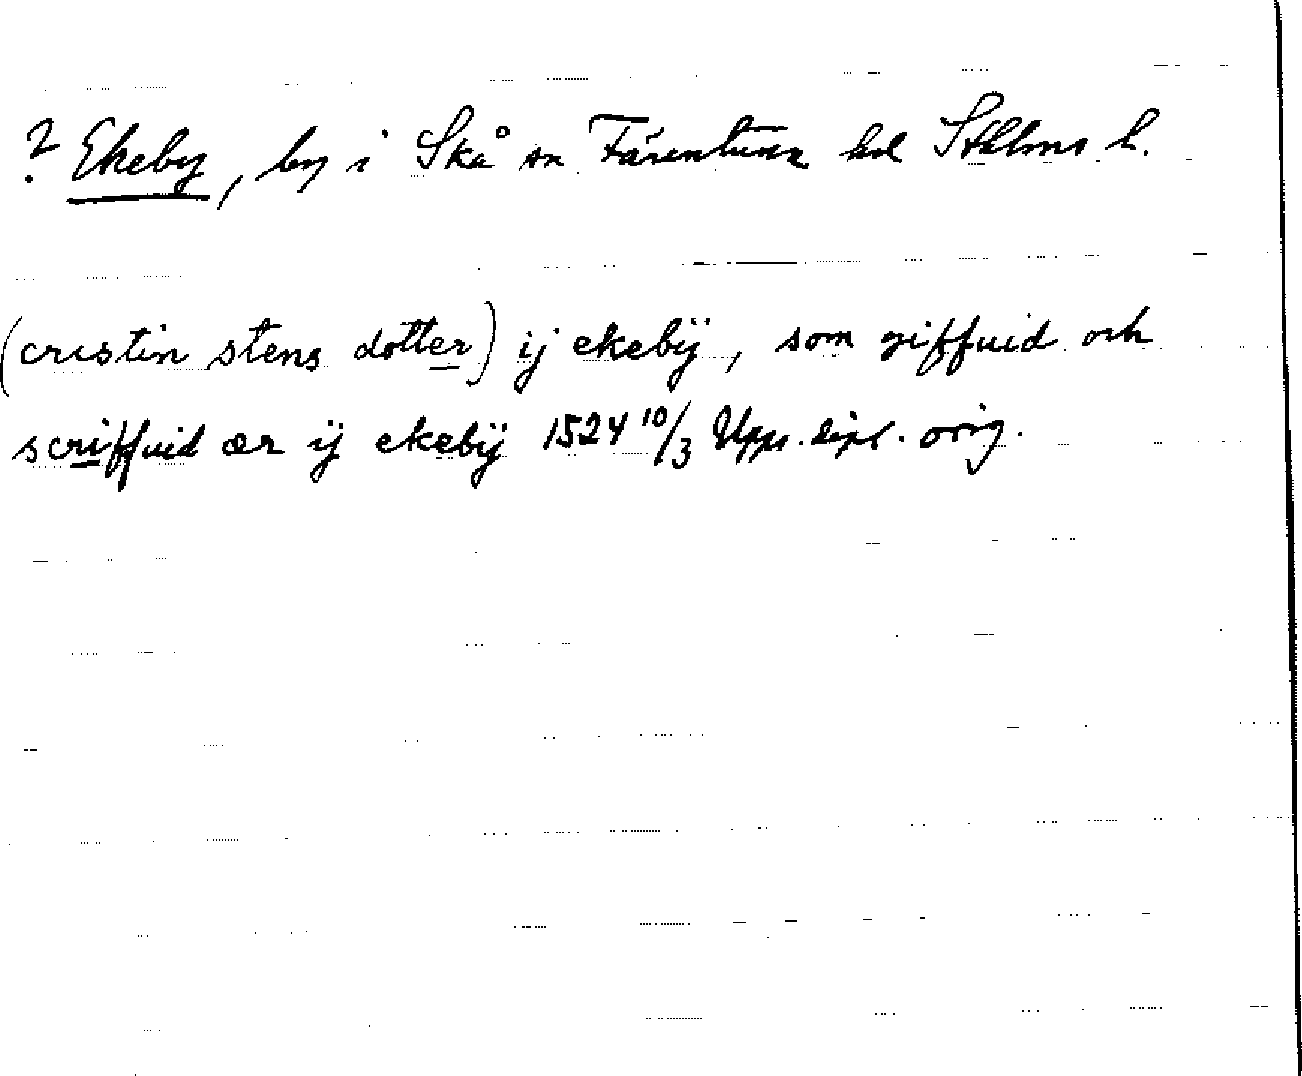 ? Ekeby, by i Skå sn Färentuna hd Sthlms l.
(cristin stens dotter) ij ekebÿ, som giffuid och
scriffuid ær ÿ ekebÿ 1524 10/3 Upps. dipl. orig.